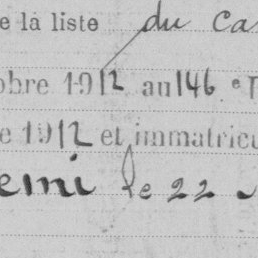 e la liste du Cas
obre 1912 au 146 e T
e 1912 et immatricu
emi le 22